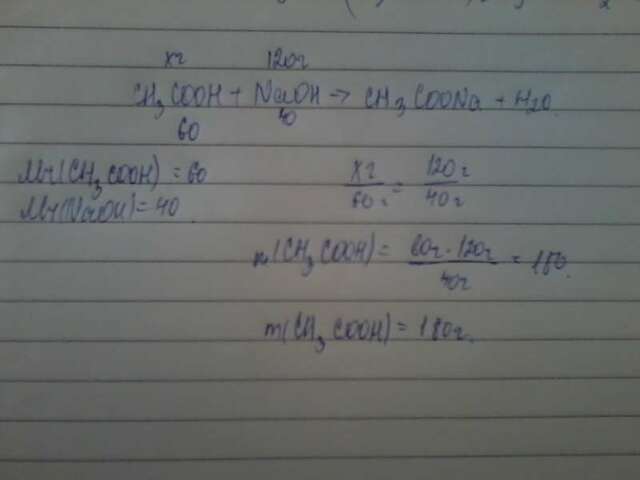 хг 120г
CH₃COOH + NaOH → CH₃COONa + H₂O
60 40
Mr(CH₃COOH) = 60
Mr(NaOH) = 40
хг/60г = 120г/40г
(CH₃COOH) = 60г·120г/40г = 180
m(CH₃COOH) = 180г.